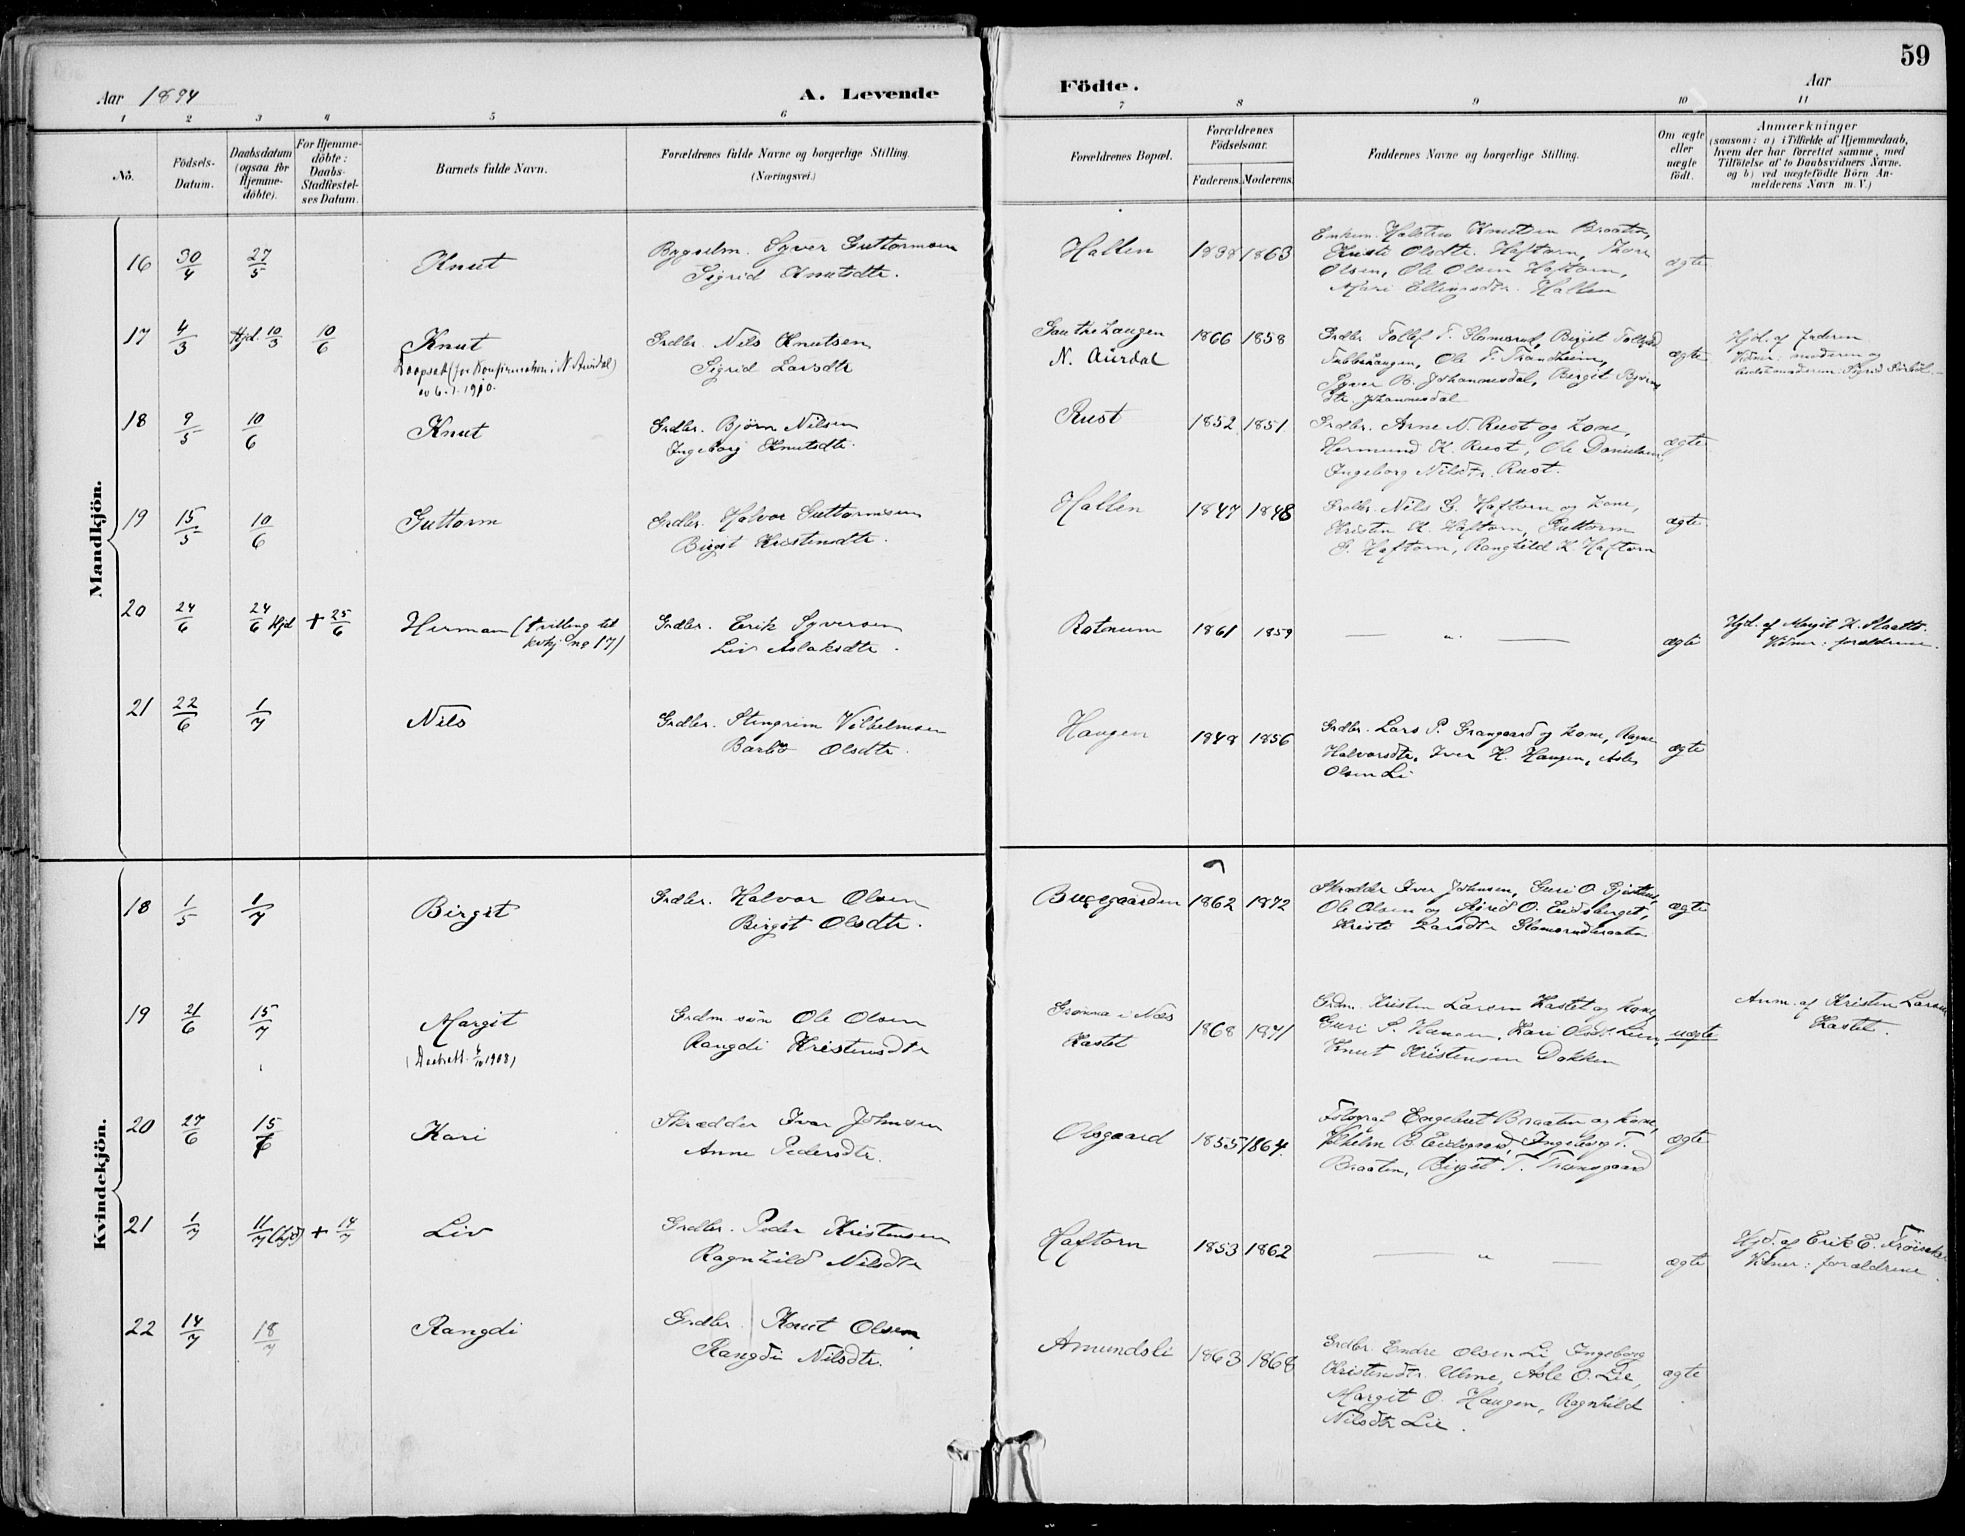 59
Aar 1894
A. Levende
Födte.
Aar
1 2 3 4 5 6 7 8 9 10 11
No.
Födsels-Datum.
Daabsdatum (ogsaa for Hjemmedöbte).
For Hjemmedöbte: Daabs-Stadfæstelses Datum.
Barnets fulde Navn.
Forældrenes fulde Navne og borgerlige Stilling. (Næringsvei.)
Forældrenes Bopæl.
Forældrenes Födselsaar.
Faderens. Moderens.
Faddernes Navne og borgerlige Stilling.
Om ægte eller uægte födt.
Anmærkninger
(saasom: a) i Tilfælde af Hjemmedaab, hvem der har forrettet samme, med Tilföielse af to Daabsvidners Navne. og b) ved uægtefödte Börn Anmelderens Navn m. V.)
Mandkjön.
16 30/4 27/5 Knut
Bygselm. Syver Guttormsen
Sigrid Knutsdtr.
Hallen 1838 1863
Enkem. Halsten Knutsen Braaten,
Kristi Olsdtr. Haftorn, Thore
Olsen, Ole Olsen Haftorn,
Mari Ellingsdtr. Hallen
ægte
17 4/3 Hjd. 10/3 10/6 Knut
Daapsatt. (for Konfirmation i N. Aurdal)
av 6.1.1910.
Grdbr. Nils Knutsen
Sigrid Larsdtr
Gauthehaugen
N. Aurdal
1866 1858
Grdbr. Tollef T. Glomsrud, Birgit Tollefsd.
Ole T. Trondheim,
Syver B. Johannesdal, Birgit Bjørns
dtr. Johannesdal
ægte
Hjd. af faderen
Vidner: moderen og
Sigrid
18 9/5 10/6 Knut
Grdbr. Bjørn Nilsen
Ingeborg Knutsdtr.
Rust 1852 1851
Grdbr. Arne N. Rust og kone,
Hermund K. Rust, Ole Danielsen,
Ingeborg Nilsdtr. Rust.
ægte
19 15/5 10/6 Guttorm
Grdbr. Halvor Guttormsen
Birgit Kristensdtr.
Hallen 1847 1848
Grdbr. Nils G. Haftorn og kone,
Kristen K. Haftorn, Guttorm
G. Haftorn, Ranghild K. Haftorn
ægte
20 24/6 24/6 Hjd + 25/6 Herman (tvilling til
kvkj no 17)
Grdbr. Erik Syversen
Liv Aslaksdtr.
Rotneim 1861 1859
— " —
ægte
Hjd. af Margit K. Slaatto.
Vidner: forældrene.
21 22/6 1/7 Nils
Grdbr. Stengrim Vilhelmsen
Barbo Olsdtr.
Haugen 1848 1856
Grdbr. Lars P. Grangaard og kone, Ragne
Halvorsdtr, Iver H. Haugen, Asle
Olsen Li
ægte
Kvindekjön.
18 1/5 1/7 Birgit
Grdbr. Halvor Olsen
Birgit Olsdtr.
Buegaarden 1862 1872
Skrædder Iver Johnsen, Guri O.
Ole Olsen og Asrid O. Eidsberget,
Kristi Larsdtr Glomsrudbraaten
ægte
19 21/6 15/7 Margit
(Daabsatt. 6/10 1908)
Grdm. sön Ole Olsen
Rangdi Kristensdtr
Grönna i Næs
Kastet
1868 1871
Grdm. Kristen Larsen Kastet og kone,
Guri S. Haugen, Kari Olsdtr Lien,
Knut Kristensen Dokken
uægte
Anm. af Kristen Larsen
Kastet.
20 27/6 15/6 Kari
Skrædder Iver Johnsen
Anne Pedersdtr.
Olsgaard 1855 1864.
Fotograf Engebret Braaten og kone,
Vilhelm B. Eidsgaard, Ingeborg T.
Braaten, Birgit T. Trongaard
ægte
21 1/7 11/7 (hjd) + 14/7 Liv
Grdbr. Peder Kristensen
Ragnhild Nilsdtr
Haftorn 1853 1862
— " —
ægte
Hjd. af Erik E. Fröisaker
Vidner: forældrene.
22 14/7 18/7 Rangdi
Grdbr. Knut Olsen
Rangdi Nilsdtr.
Amundsli 1863 1868
Grdbr. Endre Olsen Li Ingeborg
Kristensdtr. Ulsne, Asle O. Lie,
Margit O. Haugen, Ragnhild
Nilsdtr Lie.
ægte